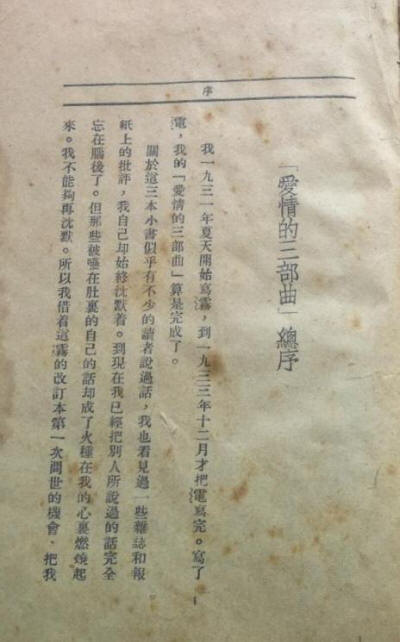 序
「愛情的三部曲」總序
我一九三一年夏天開始寫霧，到一九三三年十二月才把電寫完。寫了
電，我的「愛情的三部曲」算是完成了。
關於這三本小書似乎有不少的讀者說過話，我也看見過一些雜誌和報
紙上的批評，我自己却始終沈默着。到現在我已經把別人所說過的話完全
忘在腦後了。但那些被嚥在肚裏的自己的話却成了火種在我的心裏燃燒起
來。我不能夠再沈默。所以我借着這霧的改訂本第一次問世的機會，把我